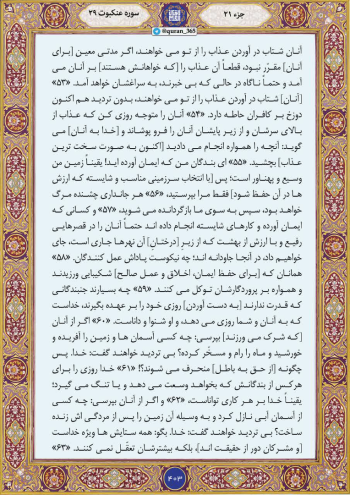 جزء ۲۱
سوره عنکبوت ۲۹
@quran_365
آنان شتاب در آوردن عذاب را از تو می خواهند، اگر مدتی معین [برای
آنان] مقرّر نبود، قطعاً آن عذاب را [که خواهانش هستند] بر آنان می
آمد و حتماً ناگاه در حالی که بی خبرند، به سراغشان خواهد آمد. «۵۳»
[آنان] شتاب در آوردن عذاب را از تو می خواهند، بدون تردید هم اکنون
دوزخ بر کافران حاطه دارد. «۵۴» آنان را متوجه روزی کن که عذاب از
بالای سرشان و از زیر پایشان آنان را فرو پوشاند و [خدا به آنان] می
گوید: آنچه را همواره انجام می دادید [اکنون به صورت سخت ترین
عذاب] بچشید. «۵۵» ای بندگان من که ایمان آورده اید! یقیناً زمین من
وسیع و پهناور است؛ پس [با انتخاب سرزمینی مناسب و شایسته که ارزش
ها در آن حفظ شود] فقط مرا بپرستید، «۵۶» هر جانداری چشنده مرگ
خواهد بود، سپس به سوی ما بازگردانده می شوید. «۵۷» و کسانی که
ایمان آورده و کارهای شایسته انجام داده اند حتماً آنان را در قصرهایی
رفیع و با ارزش از بهشت که از زیر [درختانِ] آن نهرها جاری است، جای
خواهیم داد، در آنجا جاودانه اند؛ چه نیکوست پاداش عمل کنندگان. «۵۸»
همانان که [برای حفظ ایمان، اخلاق و عمل صالح] شکیبایی ورزیدند
و همواره بر پروردگارشان توکل می کنند. «۵۹» چه بسیارند جنبندگانی
که قدرت ندارند [به دست آوردنِ] روزی خود را بر عهده بگیرند، خداست
که به آنان و شما روزی می دهد، و او شنوا و داناست. «۶۰» اگر از آنان
[که شرک می ورزند] بپرسی: چه کسی آسمان ها و زمین را آفریده و
خورشید و ماه را رام و مسخّر کرده؟ بی تردید خواهند گفت: خدا. پس
چگونه [از حق به باطل] منحرف می شوند؟! «۶۱» خدا روزی را برای
هرکس از بندگانش که بخواهد وسعت می دهد و یا تنگ می گیرد؛
یقیناً خدا بر هر کاری تواناست، «۶۲» و اگر از آنان بپرسی: چه کسی
از آسمان آبی نازل کرد و به وسیله آن زمین را پس از مردگی اش زنده
ساخت؟ بی تردید خواهند گفت: خدا. بگو: همه ستایش ها ویژه خداست
[و مشرکان دور از حقیقت اند]، بلکه بیشترشان تعقّل نمی کنند. «۶۳»
۴۰۳